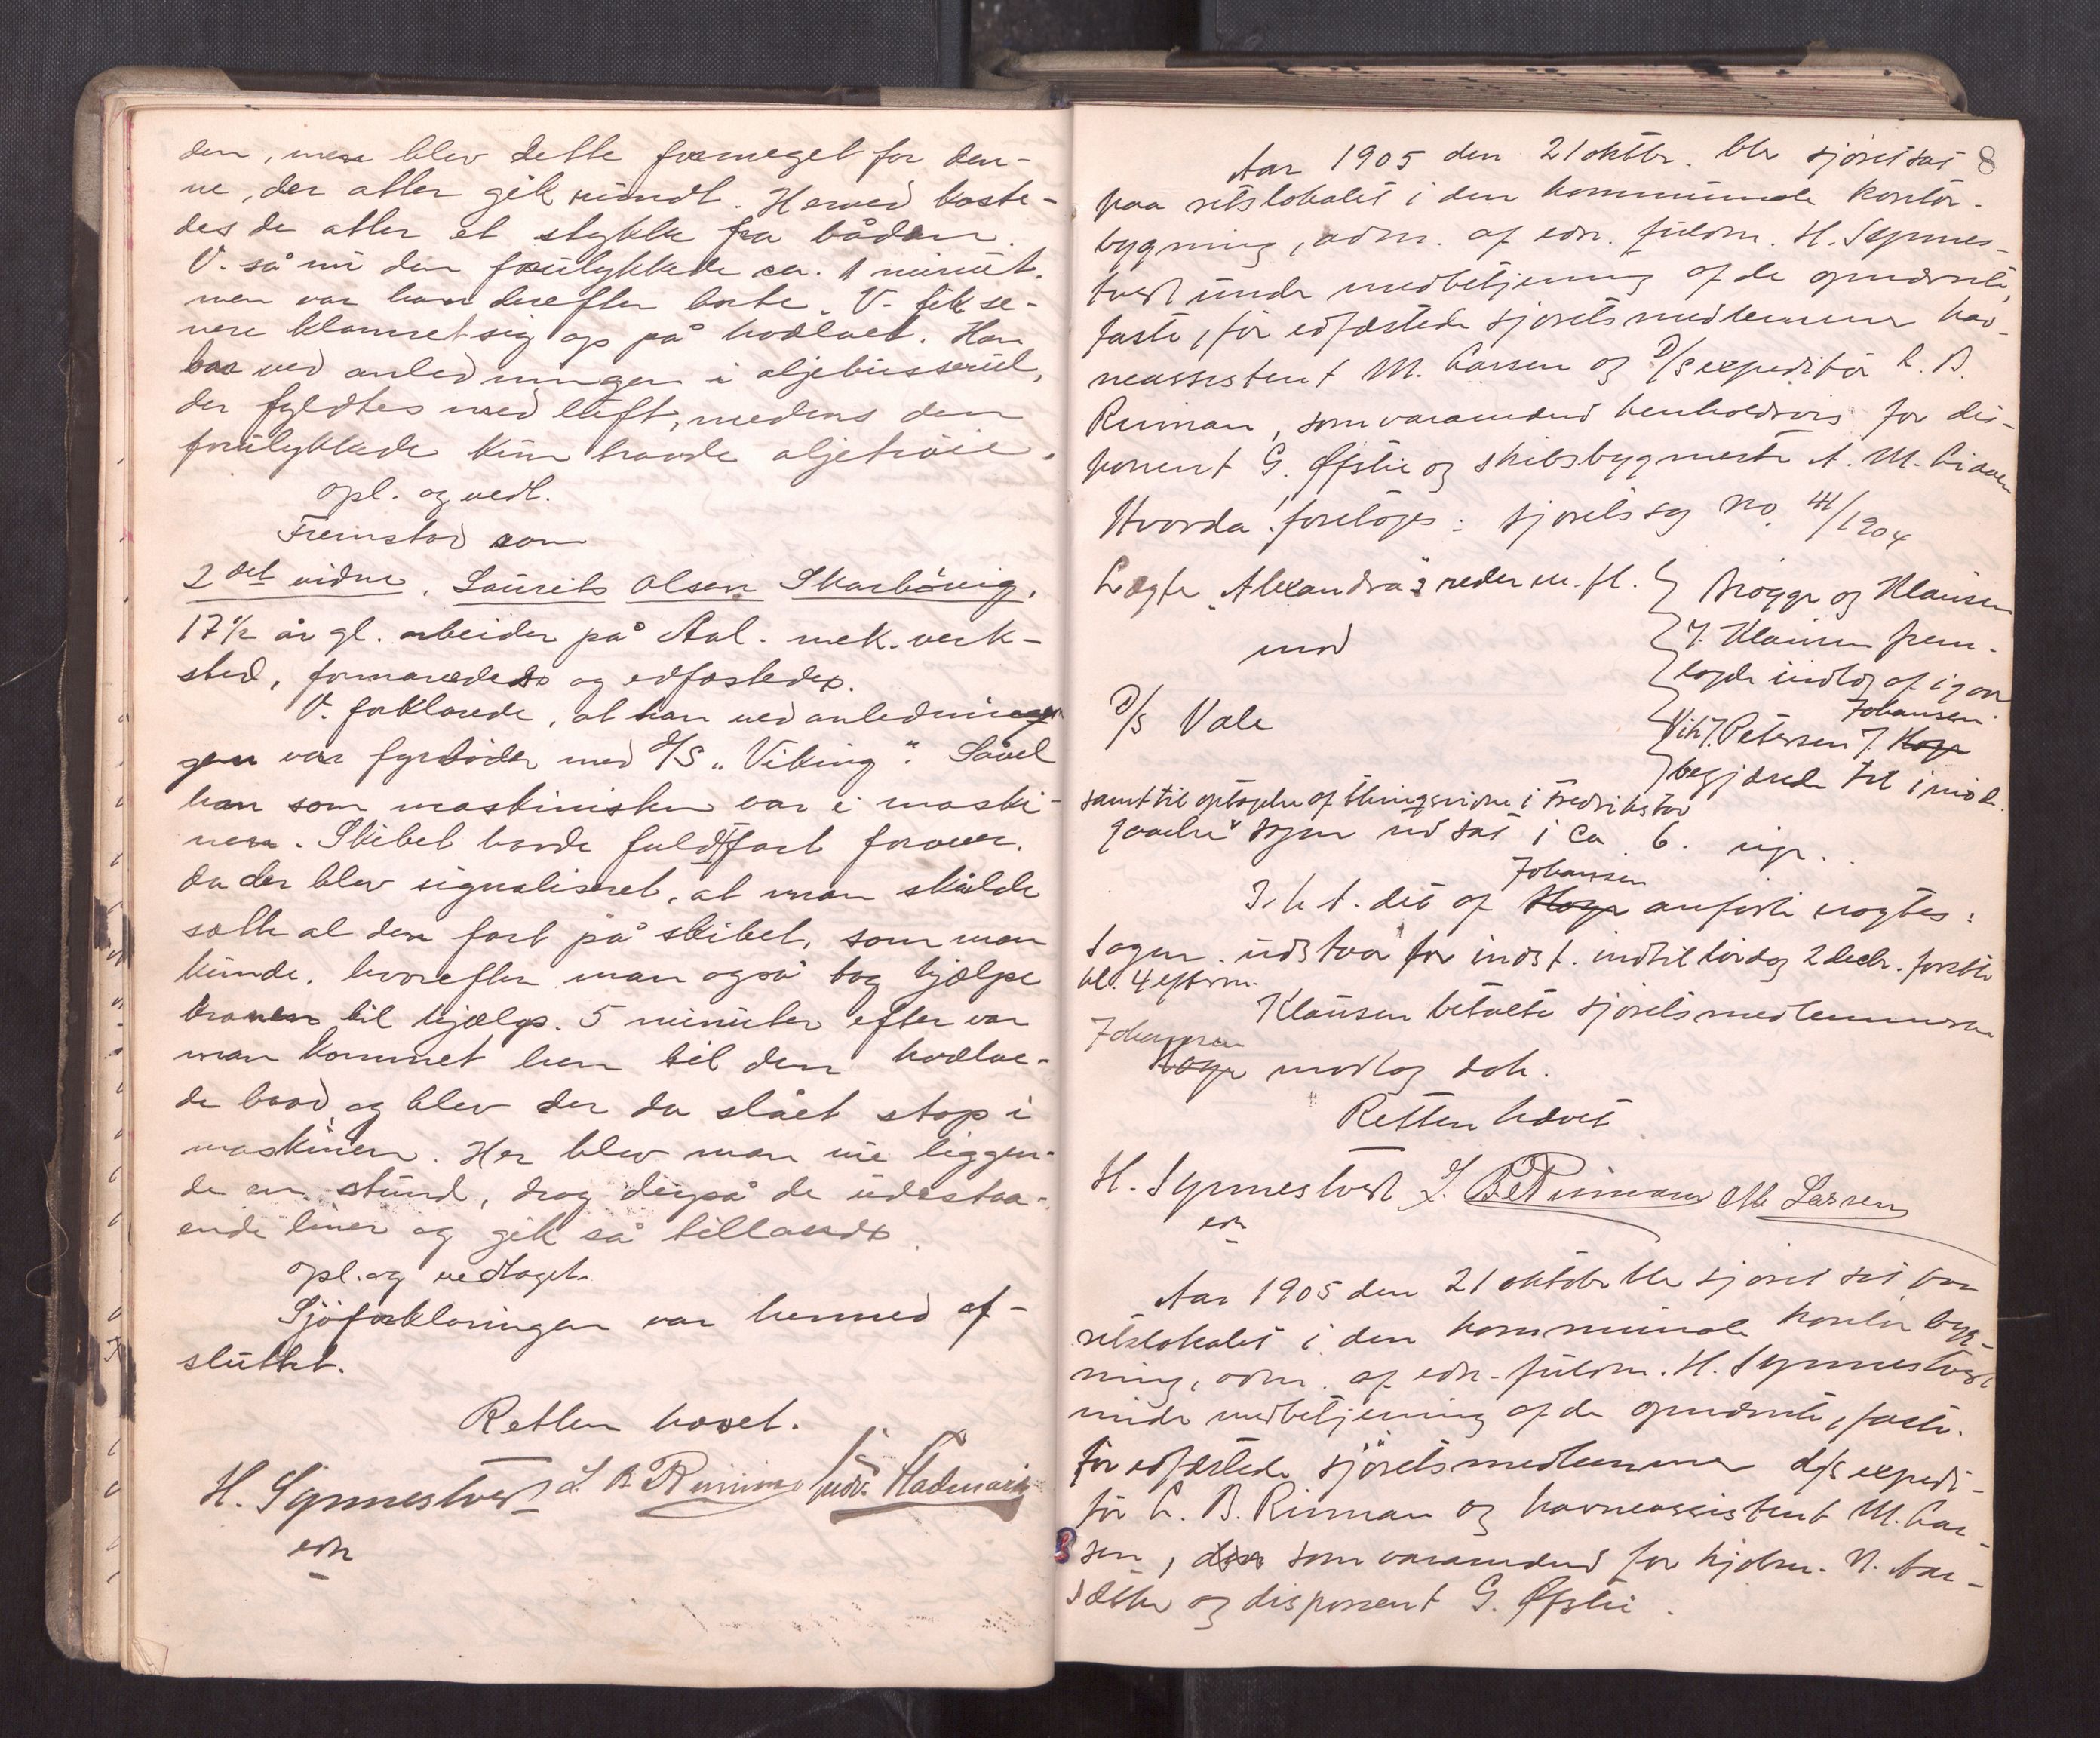 den, men blev dette formeget for den-
ne, der atter gik rundt. Herved kaste-
des de atter et stykke fra båden.
V. så nu den forulykkede ca. 1 minut.
men var han derefter borte. V. fik se-
nere klamret sig op på hvælvet. Han
bar ved anledningen i oljebusserul,
der fyldtes med luft, medens den
forulykkede kun havde oljetröie.
Opl. og vedt.
Fremstod som
2det vidne, Laurits Olsen Skarbövig,
17½ år gl. arbeider på Aal. mek. verk-
sted, formanedes og edfæstedes.
V. forklarede, at han ved anlednin
gen var fyrböder med D/S "Viking". Såvel
han som maskinisten var i maski-
nen. Skibet havde fuld fart forover.
da der blev signaliseret, at man skulde
sætte al den fart på skibet, som man
kunde, hvorefter man også tog hjælpe
kranen til hjælp. 5 minuter efter var
man kommet hen til den hvælve-
de baad og blev der da slået stop i
maskinen. Her blev man nu liggen-
de en stund, drog derpå de udestaa-
ende liner og gik så tillands
Opl. og vedtaget.
Sjöforklaringen var hermed af-
sluttet.
Retten hævet.
H. Synnestvedt L. B. Riiman Ludv.
edr
8
Aar 1905 den 21 oktbr. blev sjøret sat
paa retslokalet i den kommunale kontor-
bygning, adm. af edr. fuldm. H. Synnes-
tvedt under medbetjening af de opnævnte,
faste, før edfæstede sjøretsmedlemmer hav-
neassistent M. Larsen og D/S expeditör L. B.
Riiman, som varamænd henholdsvis for dis-
ponent G. Øfstie og skibsbygmester A. M. Liaaen
Hvorda foretoges: sjøretssag No. 41/1904
Lægter "Alexandra"s reder m. fl.
mod
D/S Vale
Brögger og Klausen
v. Klausen frem-
lagde indlæg af igaar
Johansen
Vik & Petersen v.
begjærede til imöde-
samt til optagelse af thingsvidne i Fredrikstad
gaaelse sagen udsat i ca 6. uger.
Johansen
I. h. t. det af anførte eragtes:
Sagen udstaar for indst. indtil lørdag 2 decbr. førstk.
kl. 4 efterm.
Klausen betalte sjøretsmedlemmerne
Johansen
modtog dok.
Retten hævet
H. Synnestvedt L. B. Riiman M. Larsen
edr
Aar 1905 den 21 oktober blev sjøret sat paa
retslokalet i den kommunale kontorbyg-
ning, adm. af edr. fuldm. H. Synnestvedt
under medbetjening af de opnævnte, faste.
før edfæstede sjöretsmedlemmer d/s expedi-
tör L. B. Riiman og havneassistent M. Lar-
sen, som varamænd for hjelm. N. Aar-
sæther og disponent G. Øfstie.